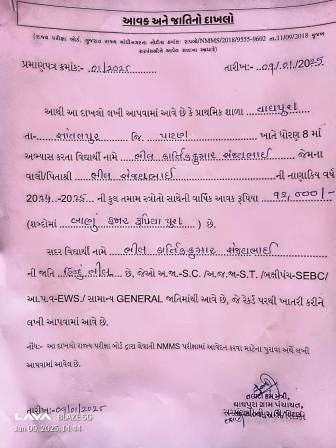 આવક અને જાતિનો દાખલો
(રાજ્ય પરીક્ષા બોર્ડ, ગુજરાત રાજ્ય ગાંધીનગરના નોટીસ ક્રમાંક રાપબો/NMMS/2018/9555-9602 તા.11/09/2018 મુજબ
પ્રમાણપત્ર ક્રમાંક:- 01/2025 તારીખ:- 09/01/2025
આથી આ દાખલો લખી આપવામાં આવે છે કે પ્રાથમિક શાળા વાઘપુરા
તા- સાંતલપુર જિ. પાટણ ખાતે ધોરણ 8 માં
અભ્યાસ કરતા વિદ્યાર્થી નામે ભીલ કાર્તિકકુમાર સંજયભાઈ જેમના
વાલી/પિતાશ્રી ભીલ સંજયભાઈ ની નાણાકિય વર્ષ
2024-2025 ની કુલ તમામ સ્ત્રોતો સાથેની વાર્ષિક આવક રૂપિયા
(શબ્દોમાં હજાર રૂપિયા પુરા) છે.
સદર વિદ્યાર્થી નામે ભીલ કાર્તિકકુમાર સંજયભાઈ
ની જાતિ હિન્દુ ભીલ છે, જેઓ અ.જા.-S.C. /અ.જ.જા-S.T. /બક્ષીપંચ-SEBC/
આ.પ.વ-EWS./ સામાન્ય GENERAL જાતિમાંથી આવે છે, જે રેકર્ડ પરથી ખાતરી કરીને
લખી આપવામાં આવે છે.
નોંધ:- આ દાખલો રાજ્ય પરીક્ષા બોર્ડ દ્વારા લેવાતી NMMS પરીક્ષામાં આવેદન કરવા માટેના પુરાવા અર્થે લખી
આપવામાં આવેલ છે.
તલાટી કમ મંત્રી,
વાઘપુરા ગ્રામ પંચાયત,
તારીખ:-09/01/2025
LAVA BLAZE 5G
Jan 09, 2025, 14:44